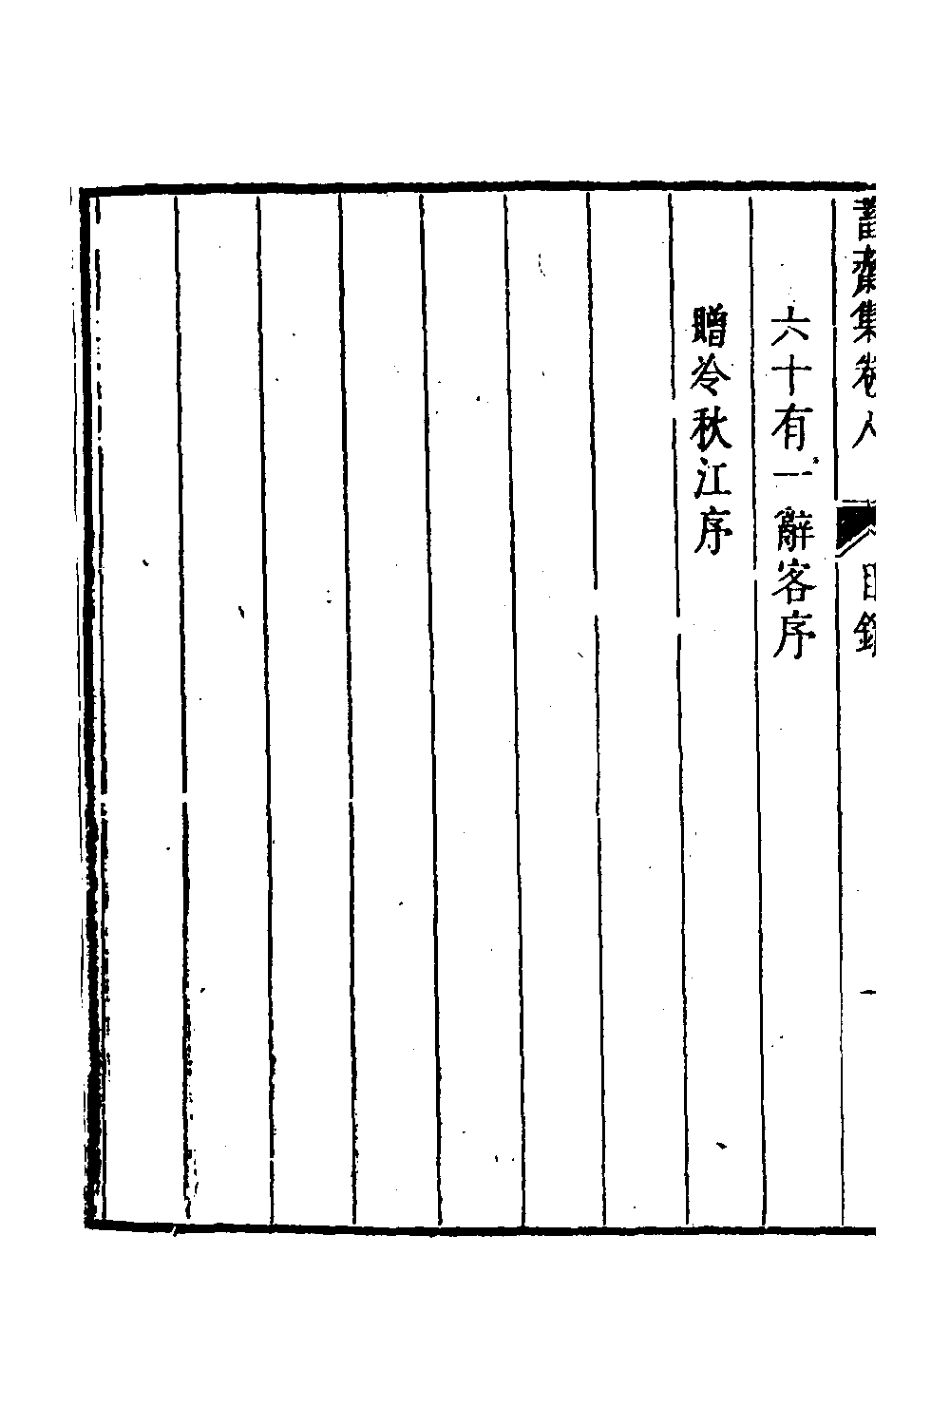 齋集卷八 目錄 一
六十有一辭客序
贈冷秋江序